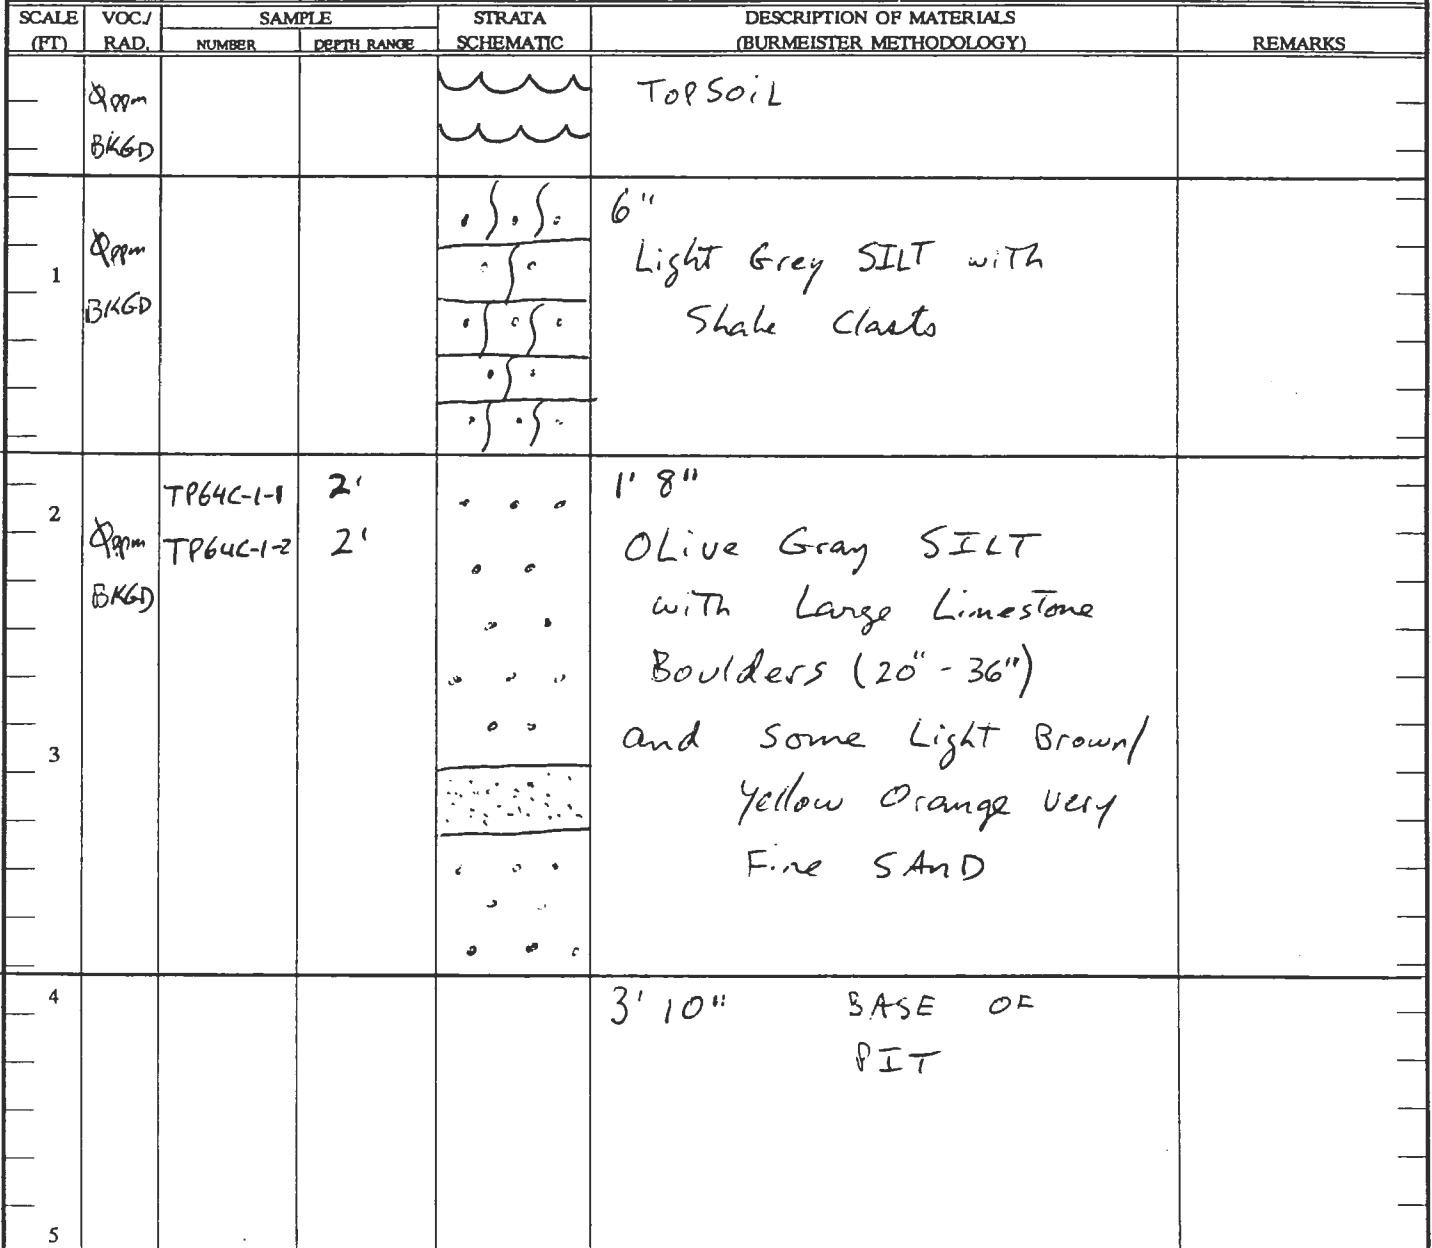 SCALE (FT) VOC./ RAD. SAMPLE NUMBER DEPTH RANGE STRATA SCHEMATIC DESCRIPTION OF MATERIALS (BURMEISTER METHODOLOGY) REMARKS
Øppm
BKGD
TOPSOIL
6"
1
Øppm
BKGD
Light Grey SILT with
Shale Clasts
TP64C-1-1 2' 1' 8"
2
Øppm TP64C-1-2 2' OLive Gray SILT
BKGD with Large Limestone
Boulders (20" - 36")
and some Light Brown/
3
Yellow Orange very
Fine SAnD
4
3' 10" BASE OF
PIT
5